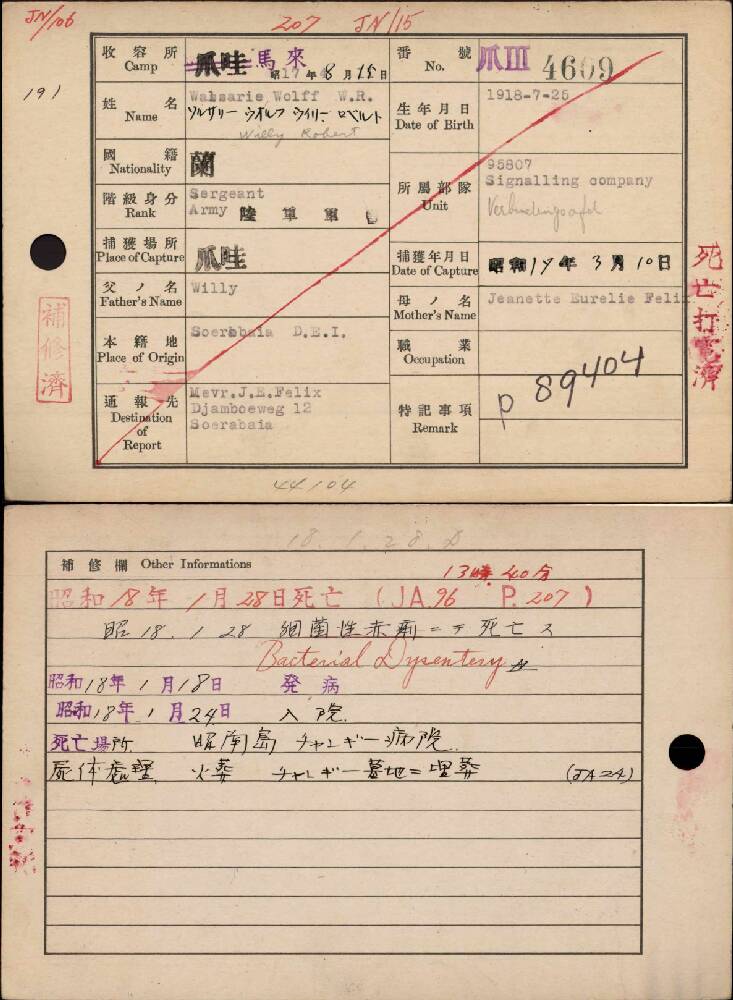 JN/106
207 JN/115
191
收容所 Camp 爪哇 馬來 昭17年8月15日
番號 No. 爪III 4609
姓名 Name Walsarie Wolff W.R.
ワルサリー ウオルフ ウイリー ロベルト
Willy Robert
生年月日 Date of Birth 1918-7-25
國籍 Nationality 蘭
階級身分 Rank Sergeant
Army 陸軍
所屬部隊 Unit 95807
Signalling company
捕獲場所 Place of Capture 爪哇
捕獲年月日 Date of Capture 昭和17年3月10日
父ノ名 Father's Name Willy
母ノ名 Mother's Name Jeanette Eurelie Felix
本籍地 Place of Origin Soerabaia D.E.I.
職業 Occupation
通報先 Destination of Report Mevr.J.E.Felix
Djamboeweg 12
Soerabaia
特記事項 Remark
P 89404
補修濟
死亡打電濟
44104
18.1.28.
補修欄 Other Informations
13時40分
昭和18年1月28日死亡 (JA.96 P.207)
昭18.1.28 細菌性赤痢ニテ死亡ス
Bacterial Dysentery
昭和18年1月18日 発病
昭和18年1月24日 入院
死亡場所 昭南島 チャンギー病院
屍体處理 火葬 チャンギー墓地ニ埋葬 (JA24)